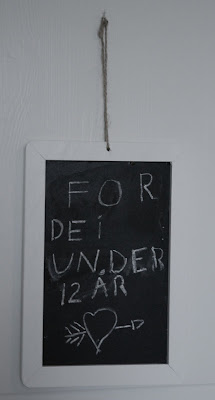 FOR
DEi
UN.DER
12 ÅR